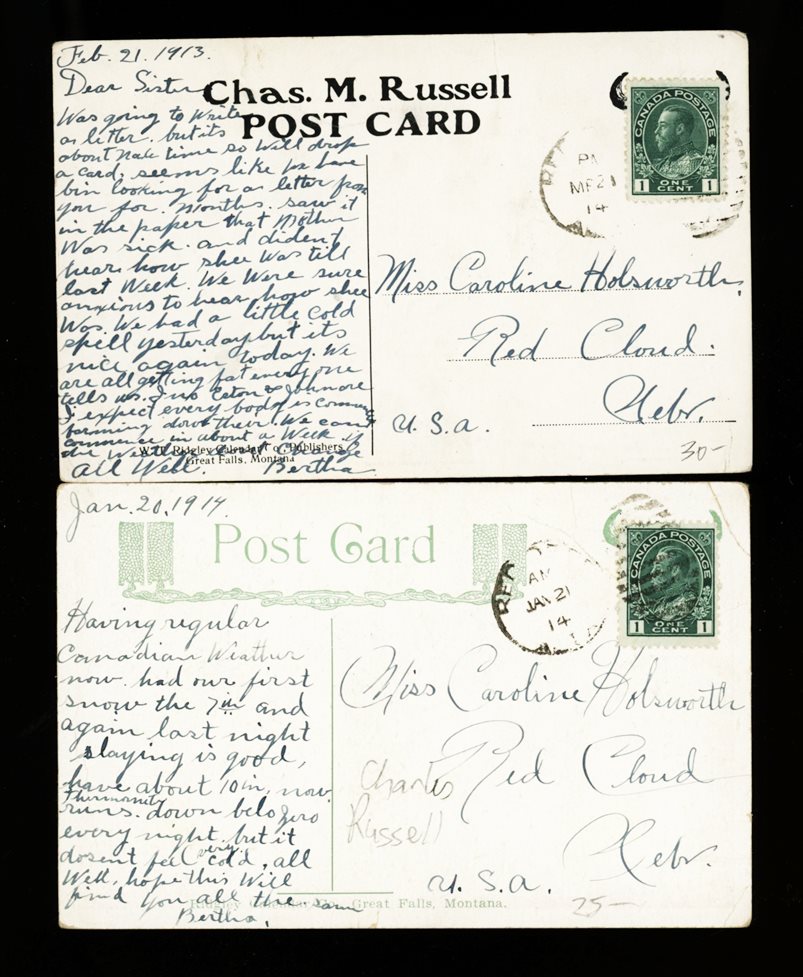 Feb. 21. 1913.
Dear Sister
Was going to Write
a letter. but its
about Male time so Will drop
a card. seems like we have
bin looking for a letter from
you for. Months. saw it
in the paper that Mother
Was sick. and dident
hear how shee Was till
last Week. We Were sure
anxious to hear how shee
Was. We had a little cold
spell yesterday but its
nice again today. We
are all getting fat every one
tells us.
I expect every body is
farming down their. We can
commence in about a Week if
the
All Well. Bertha
Chas. M. Russell
POST CARD
CANADA POSTAGE
1 ONE CENT 1
PM
21
14
Miss Caroline Holsworth,
Red Cloud.
Nebr.
U.S.a.
30-
Ridgley Calendar Co. Publishers
Great Falls, Montana
Jan. 20, 1914.
Post Card
CANADA POSTAGE
1 ONE CENT 1
AM
JAN 21
14
Having regular
Canadian Weather
now. had our first
snow the 7th and
again last night
slaying is good,
have about 10 in. now.
Thermometer
runs. down belo Zero
every night. but it
dosent feel very cold, all
Well, hope this Will
find you all the same
Bertha,
Miss Caroline Holsworth
Red Cloud
Nebr.
U.S.a.
Charles
Russell
25-
Ridgley Calendar Co. Great Falls, Montana.